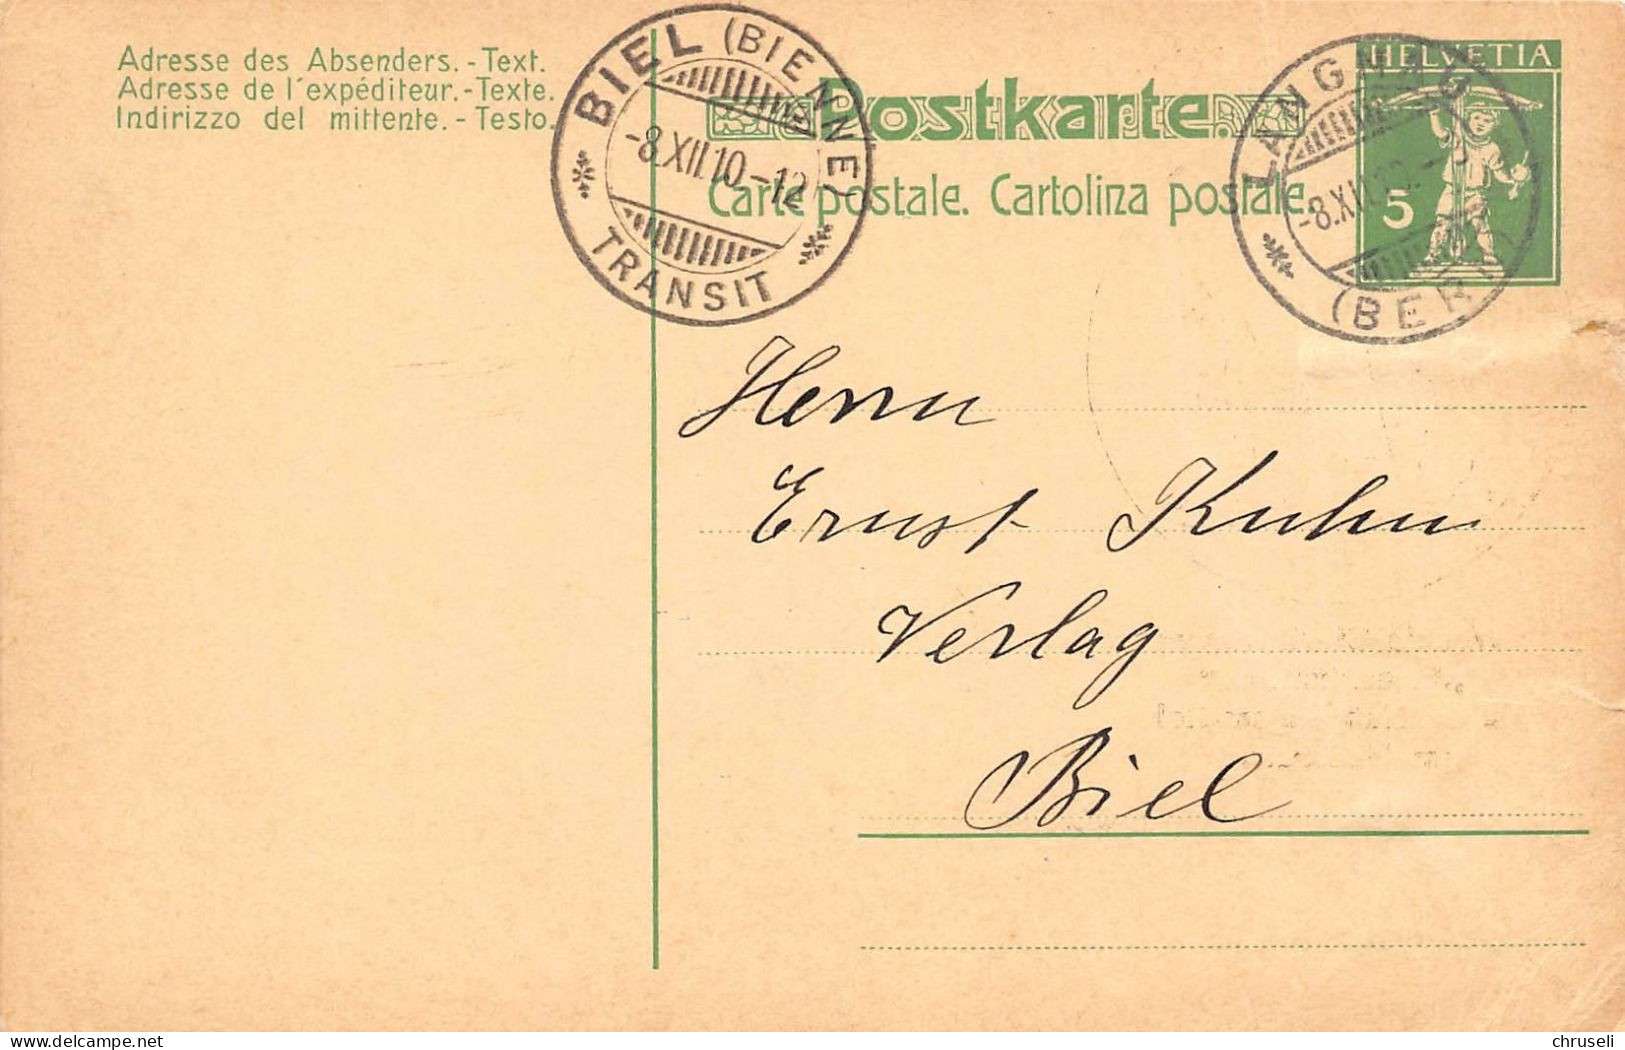 Adresse des Absenders.-Text.
Adresse de l'expéditeur.-Texte.
Indirizzo del mittente.-Testo.
BIEL (BIENNE)
-8.XII.10-12
TRANSIT
Postkarte.
Carte postale. Cartolina postale.
LANGNAU
-8.XII.10.-
(BERN)
HELVETIA
5
Herrn
Ernst Kuhn
Verlag
Biel
delcampe.net
chruseli